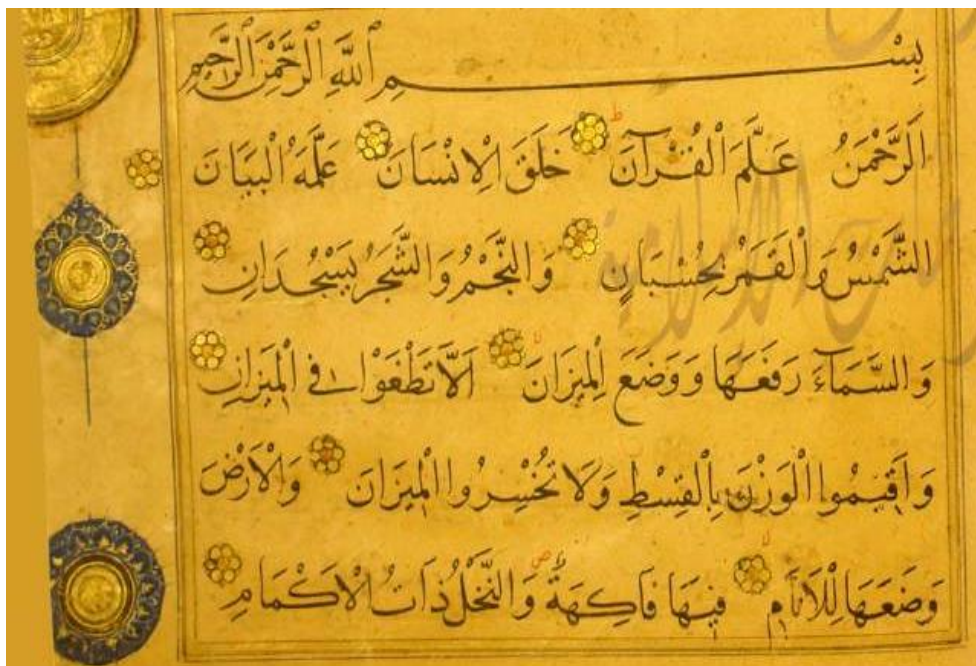 بِسْمِ ٱللَّهِ ٱلرَّحْمٰنِ ٱلرَّحِيمِ
اَلرَّحْمٰنُ عَلَّمَ الْقُرْآنَ خَلَقَ الْاِنْسَانَ عَلَّمَهُ الْبَيَانَ
الشَّمْسُ وَالْقَمَرُ بِحُسْبَانٍ وَالنَّجْمُ وَالشَّجَرُ يَسْجُدَانِ
وَالسَّمَآءَ رَفَعَهَا وَوَضَعَ الْمِيزَانَ اَلَّا تَطْغَوْا فِي الْمِيزَانِ
وَاَقِيمُوا الْوَزْنَ بِالْقِسْطِ وَلَا تُخْسِرُوا الْمِيزَانَ وَالْاَرْضَ
وَضَعَهَا لِلْاَنَامِ فِيهَا فَاكِهَةٌ وَالنَّخْلُ ذَاتُ الْاَكْمَامِ